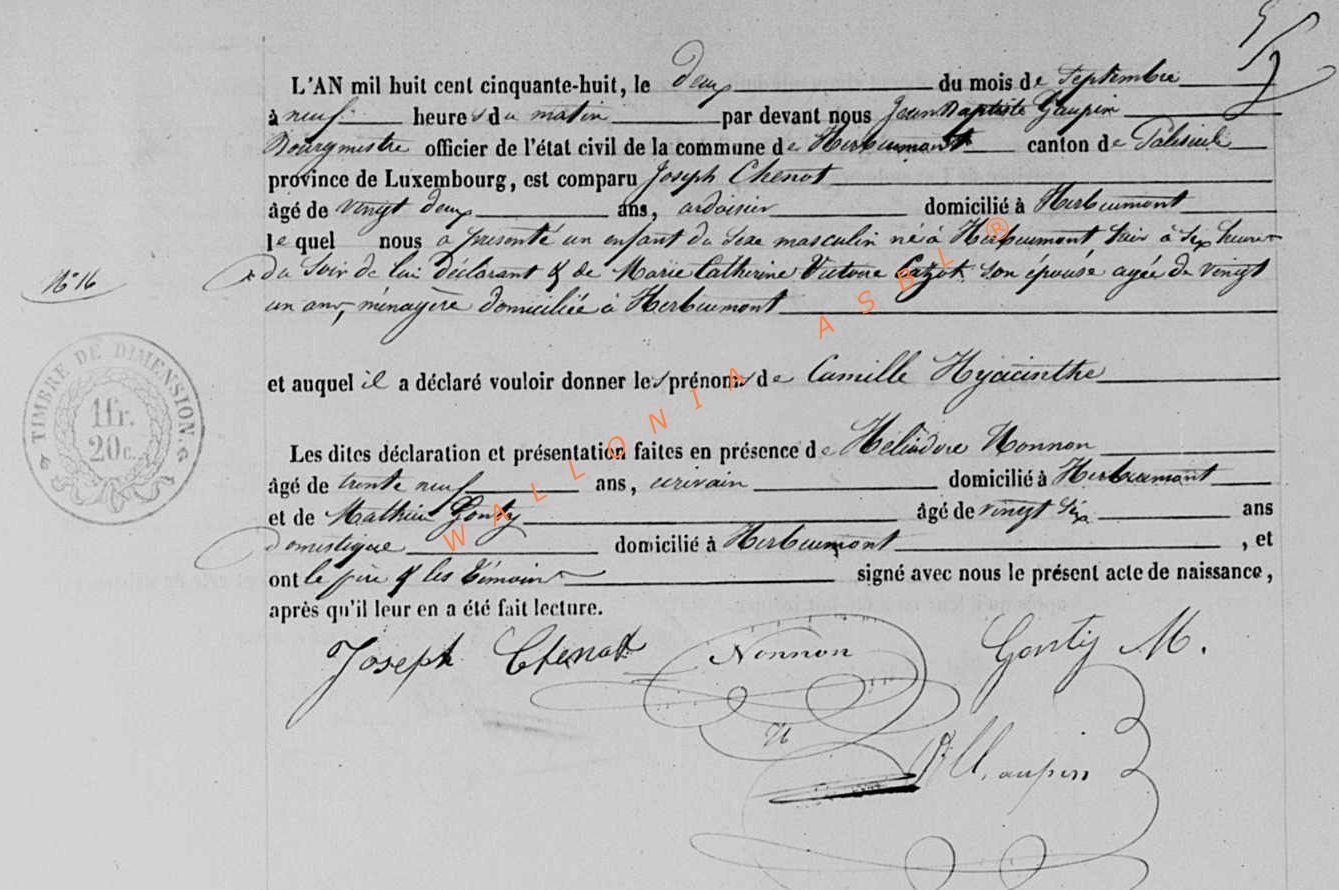 L'AN mil huit cent cinquante-huit, le deux du mois de Septembre
à neuf heures du matin par devant nous Jean Baptiste Gaupin
Bourgmestre officier de l'état civil de la commune de Herbeumont canton de Paliseul
province de Luxembourg, est comparu Joseph Chenot
âgé de vingt deux ans, ardoisier domicilié à Herbeumont
lequel nous a présenté un enfant du Sexe masculin né à Herbeumont hier à six heures
N° 16
du Soir de lui déclarant & de Marie Catherine Victoire son épouse agée de vingt
un ans, ménagère domiciliée à Herbeumont
et auquel il a déclaré vouloir donner les prénoms de Camille Hyacinthe
Les dites déclaration et présentation faites en présence de Héliodore Nonnon
âgé de trente neuf ans, écrivain domicilié à Herbeumont
et de Mathieu Gonty âgé de vingt six ans
domestique domicilié à Herbeumont, et
ont le père & les témoins signé avec nous le présent acte de naissance,
après qu'il leur en a été fait lecture.
TIMBRE DE DIMENSION.
1fr.
20c.
Joseph Chenot Nonnon Gonty M.
WALLONIA ASBL ®